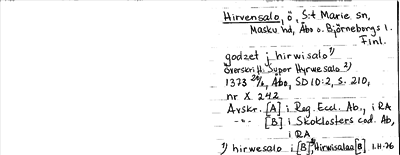 Hirvensalo, ö, S:t Marie sn,
Masku hd, Åbo o. Björneborgs l.
Finl.
godzet j hirwisalo 1)
överskrift: Super Hyrwesalo 2)
1373 24/6, Åbo, SD 10:2, s. 210,
nr X 242
Avskr. [A] i Reg. Eccl. Ab., i RA
-"- [B] i Skoklosters cod. Ab,
i RA
1) hirwesalo i [B] 2) Hirwisaloa [B] 1.H-76